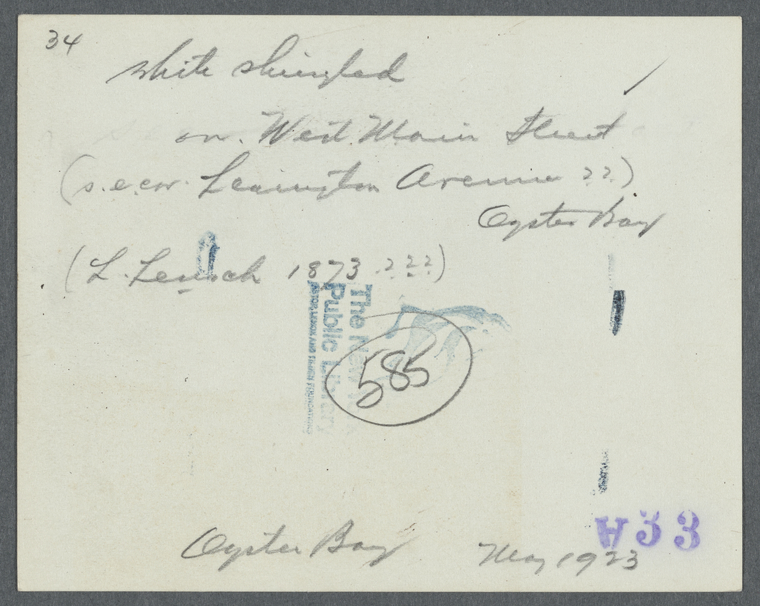 34
White shingled
on West Main Street
(s.e.cor. Lexington Avenue ??)
Oyster Bay
(L. Lensch 1873 ???)
The New
Public Library
ASTOR, LENOX AND TILDEN FOUNDATIONS
585
Oyster Bay May 1923
A33